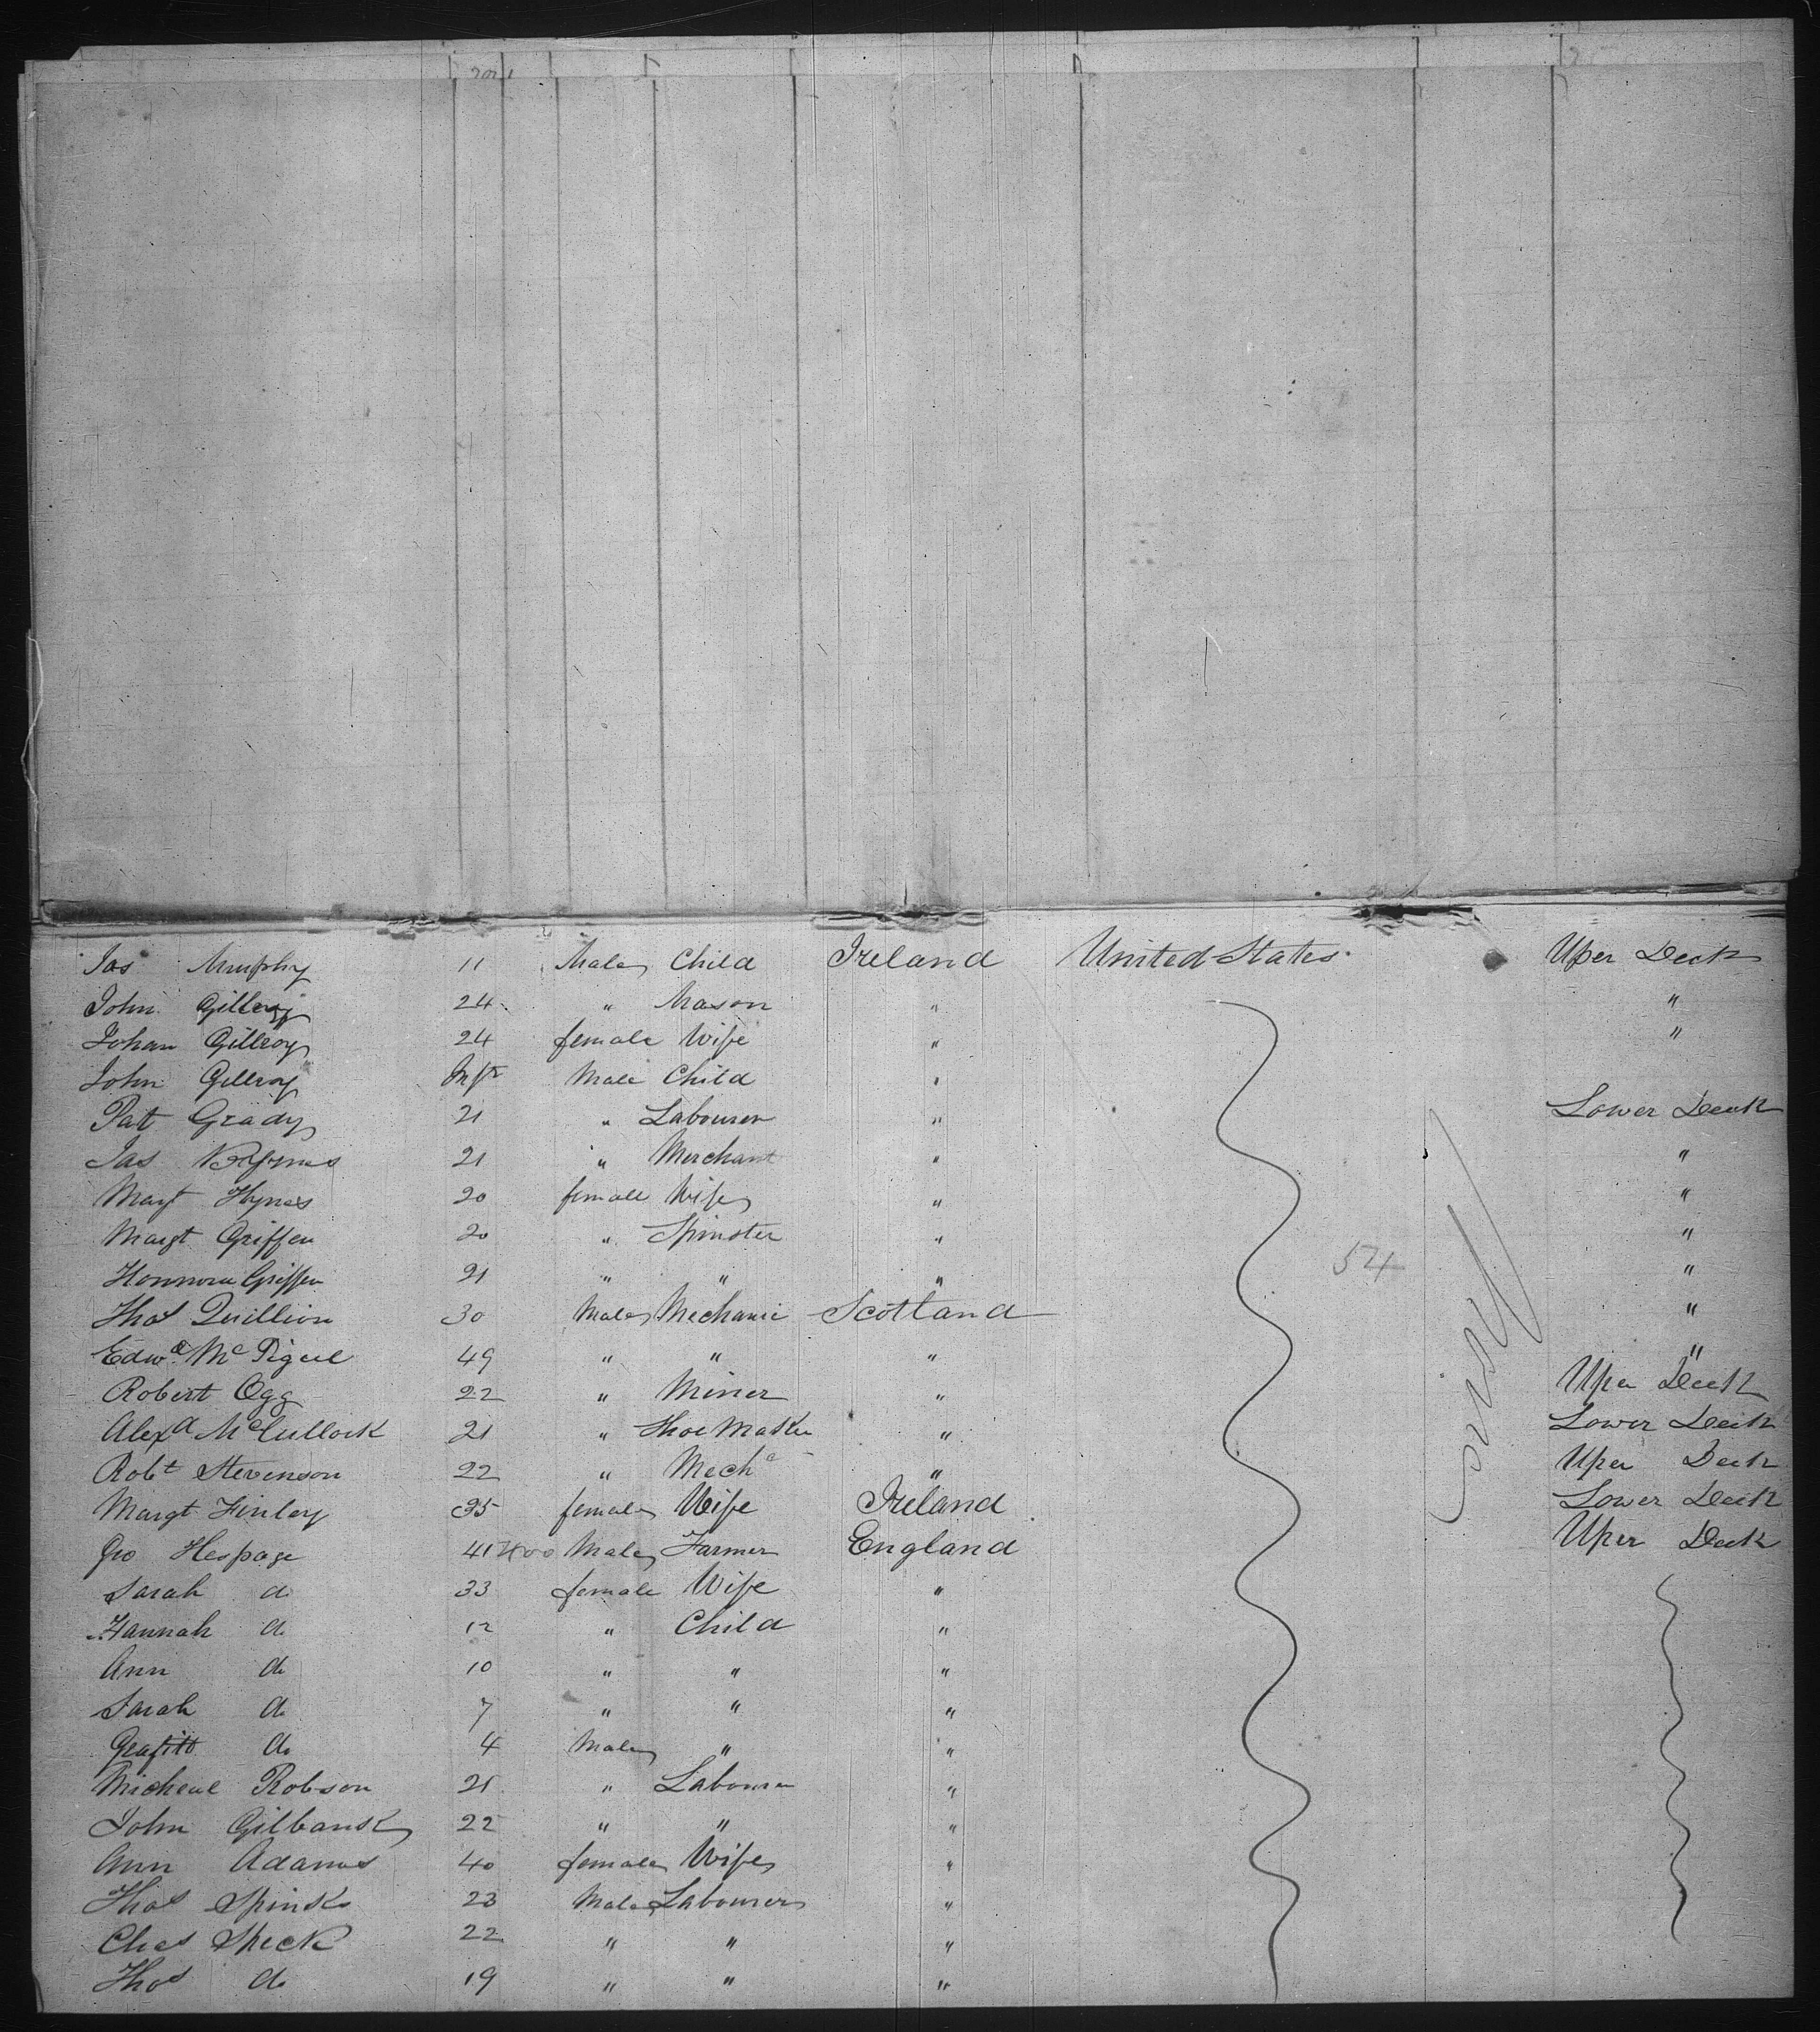 Jas Murphy 11 Male Child Ireland United States. Uper Deck
John Gillroy 24 " Mason " "
Johan Gillroy 24 female Wife " "
John Gillroy Inft Male Child "
Pat Grady 21 " Labourer " Lower Deck
Jas 21 " Merchant " "
Margt Hynes 20 female Wife " "
Margt Griffen 20 " Spinster " "
Honnora Griffen 21 " " " "
Thos Quillion 30 Male Mechanic Scotland "
Edwd. Mc 49 " " " "
Robert Ogg 22 " Miner " Uper Deck
Alexd McCullock 21 " Shoe Maker " Lower Deck
Robt Stevenson 22 " Mechc " Uper Deck
Margt Finley 35 female Wife Ireland Lower Deck
Geo Hespage 41 Male Farmer England Uper Deck
Sarah do 33 female Wife "
Hannah do 12 " Child "
Ann do 10 " " "
Sarah do 7 " " "
do 4 Male " "
Micheal Robson 21 " Labourer "
John Gilbank 22 " " "
Ann Adams 40 female Wife "
Thos Spinks 23 Male Labourer "
Chas Speck 22 " " "
Thos do 19 " " "
54